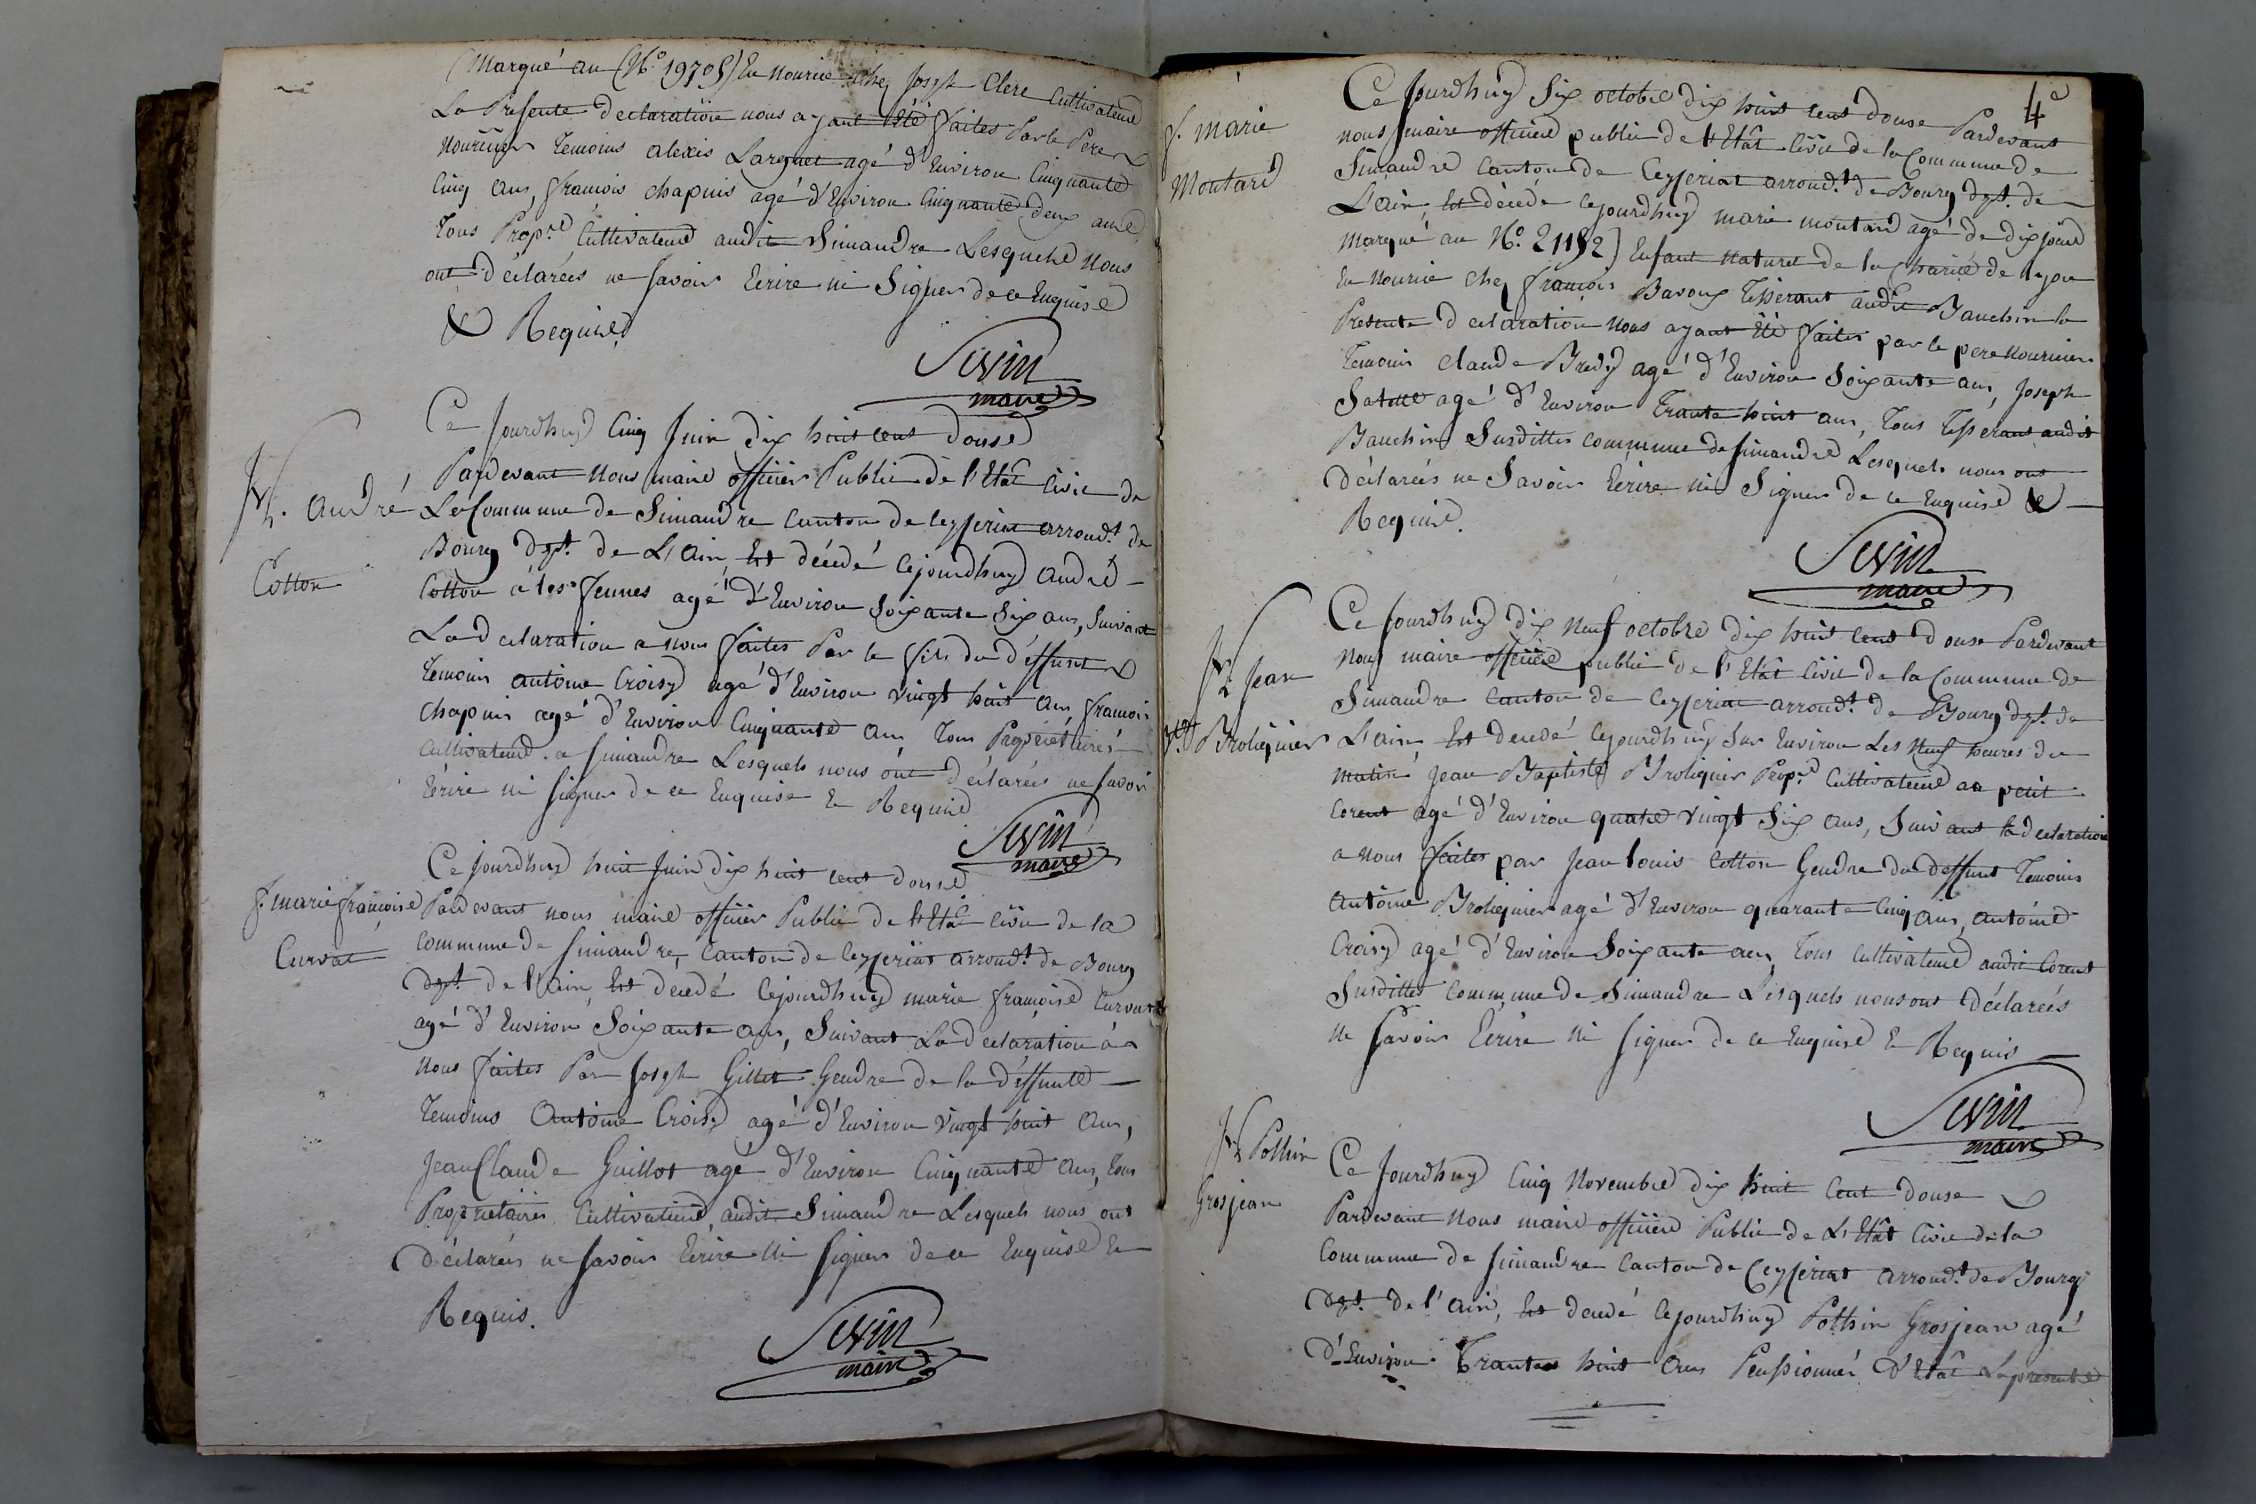 (Marqué au (N.° 19705) En nourice chez Joseph Clerc Cultivateur
La Presente declaration nous ayant Eté faites Par le Pere
Nourricier Temoins alexis Larguet agé d'Environ Cinquante
Cinq ans, françois chapuis agé d'Environ Cinquante deux ans
Tous Prop.re Cultivateurs audit Simandre Lesquels Nous
ont déclarées ne savoir Ecrire ni Signer de ce Enquise
& Requises
Sevin
maire
Ce jourdhuy Cinq Juin dix huit cent douse
Pardevant Nous maire officier Public de l'Etat Civil de
La Commune de Simandre Canton de Ceyseriat arroud.t de
Bourg dpt. de L'Ain, Est décédé Cejourdhuy André
Cotton à les Jeunes agé d'Environ Soixante Six ans, Suivant
La declaration a nous faites Par le fils du déffunt
Temoins antoine Croisy agé d'Environ vingt huit ans françois
Chapuis agé d'Environ Cinquante ans Tous Propriétaires
Cultivateurs a Simandre Lesquels nous ont déclarées ne savoir
Ecrire ni signer de ce Enquise Et Requise
Sevin
maire
andré
Cotton
Ce jourdhuy huit Juin dix huit cent douse
Pardevant nous maire officier Public de l'Etat Civil de la
Commune de Simandre, Canton de Ceyseriat arroud.t de Bourg
dpt. de l'ain, Est decedé Cejourdhuy marie françoise Curvat
agé d'Environ Soixante ans, Suivant La declaration à
Nous faites Par Joseph Gillet Gendre de la déffunte
Temoins Antoine Croisy agé d'Environ Vingt huit Ans,
Jean Claude Guillot agé d'Environ Cinquante ans, Tous
Propriétaires Cultivateurs, audit Simandre Lesquels nous ont
déclarées ne savoir Ecrire Ni signer de ce Enquise Et
Requis.
Sevin
maire
f. marie françoise
Curvat
4e
Ce jourdhuy Six octobre dix huit cent douse Pardevant
nous maire officier public de l'Etat Civil de la Commune de
Simandre Canton de Ceyseriat arroud.t de Bourg dpt. de
L'ain, Est décédé cejourdhuy marie moutard agé de dix jours
marqué au N.° 21152) Enfant Naturel de la Charité de lyon
En Nourice chez françois Bavoux Tisserant audit Bauchin la
Presente declaration Nous ayant Eté faites par le pere Nourricier
Temoins claude Bredy agé d'Environ Soixante ans, Joseph
agé d'Environ Trante huit ans, Tous Tisserants audit
Bauchin Susdittes Commune de Simandre Lesquels nous ont
déclarées ne Savoir Ecrire Ni Signer de ce Enquise &
Requise.
Sevin
maire
f. marie
Moutard
Ce jourdhuy dix Neuf octobre dix huit cent douse Pardevant
Nous maire officier public de l'Etat Civil de la Commune de
Simandre Canton de Ceyseriat arroud.t de Bourg dpt. de
L'ain, Est decedé Cejourdhuy Sur Environ Les Neuf heures du
matin Jean Baptiste Broliquier Prop.re Cultivateur au petit
Corent agé d'Environ quatre vingt Six ans, Suivant la declaration
a nous faites par Jean Louis Cotton Gendre du deffunt Temoins
Antoine Broliquier agé d'Environ quarante Cinq ans, antoine
Croisy agé d'Environ Soixante ans, Tous Cultivateurs audit Corent
Susdittes Commune de Simandre Lesquels nous ont déclarées
ne savoir Ecrire Ni signer de ce Enquise Et Requis
Sevin
maire
Jean
Bte Broliquier
Ce jourdhuy Cinq Novembre dix huit Cent douse
Pardevant Nous maire officier Public de L'Etat Civil de la
Commune de Simandre Canton de Ceyseriat arroud.t de Bourg
dpt. de l'Ain, Est decedé Cejourdhuy Pothin Grosjean agé
d'Environ Trante huit Ans Pensionné d'Etat La presente
Pothin
Grosjean